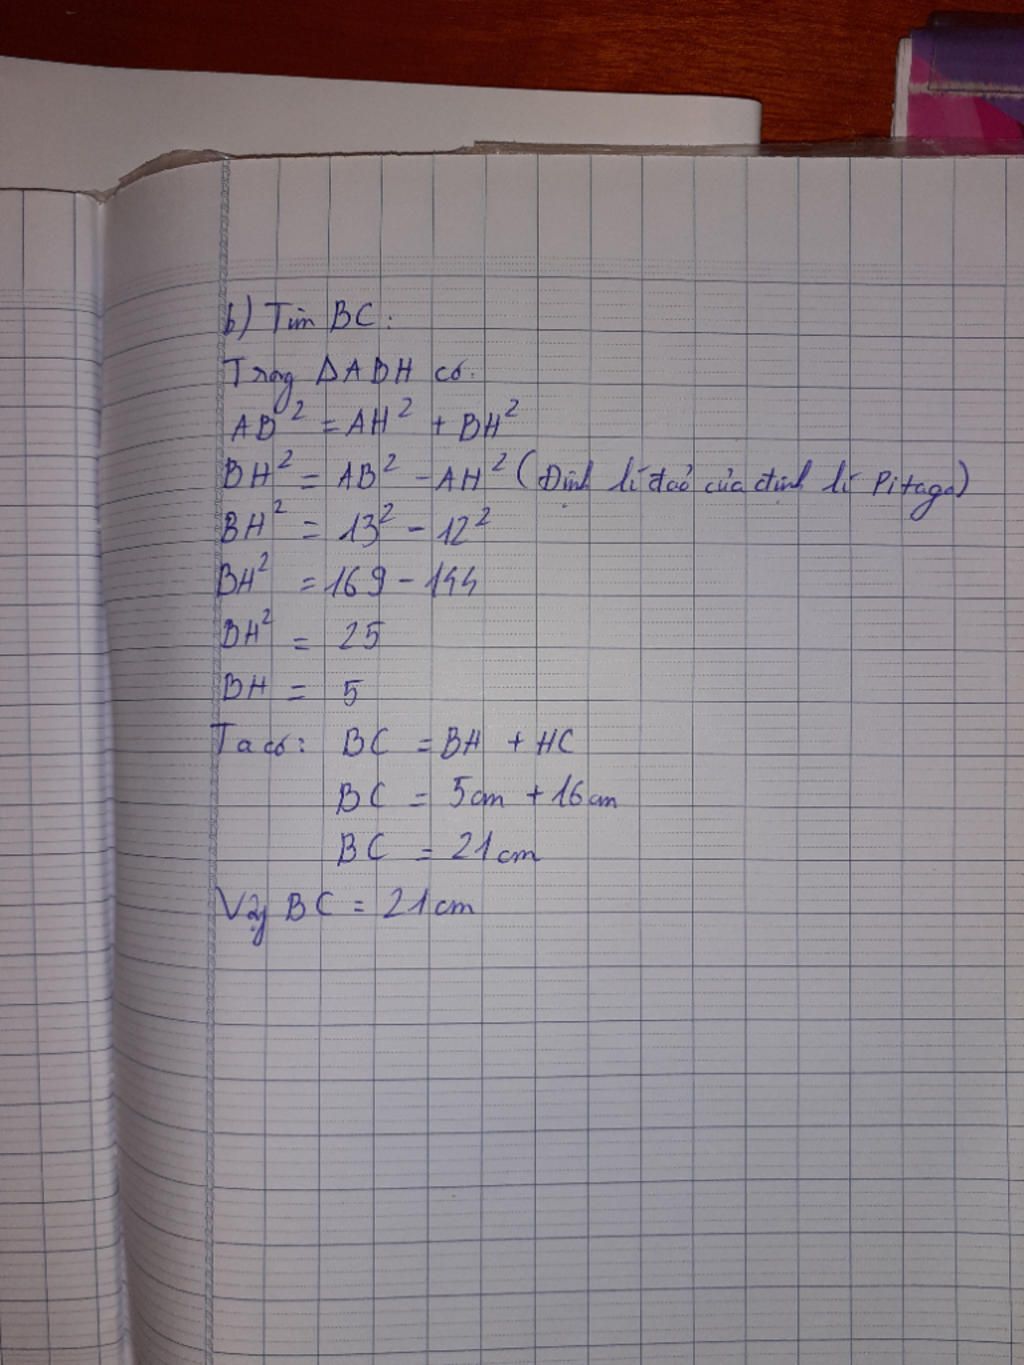 b) Tìm BC:
Trong ΔABH có:
AB² = AH² + BH²
BH² = AB² - AH² (Định lí đảo của định lí Pitago)
BH² = 13² - 12²
BH² = 169 - 144
BH² = 25
BH = 5
Ta có: BC = BH + HC
BC = 5cm + 16cm
BC = 21cm
Vậy BC = 21cm